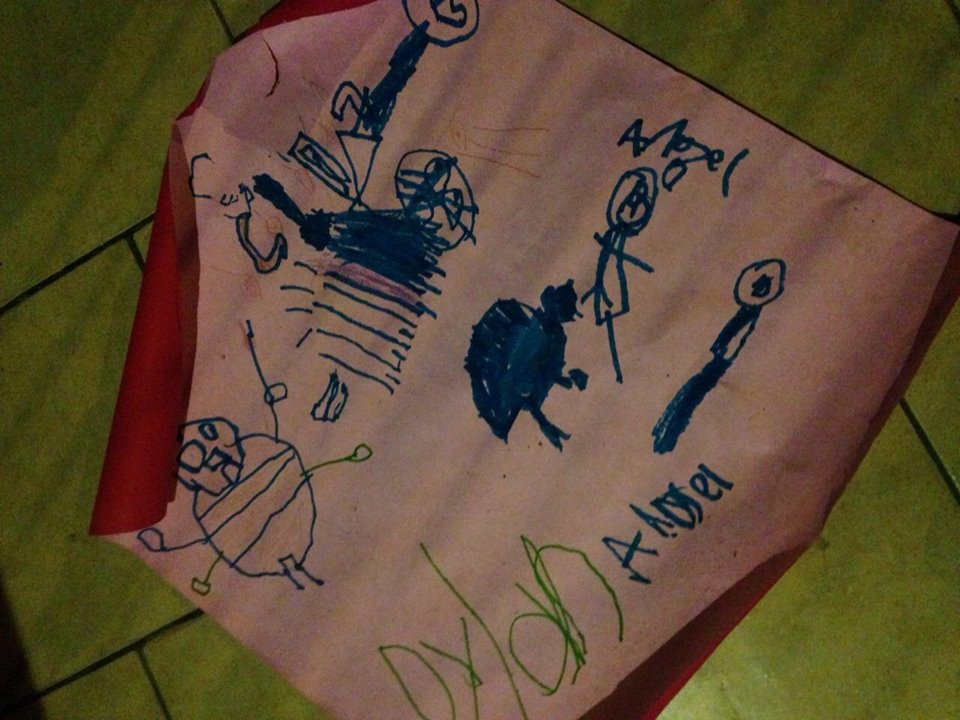 Angel
Angel
Dylan